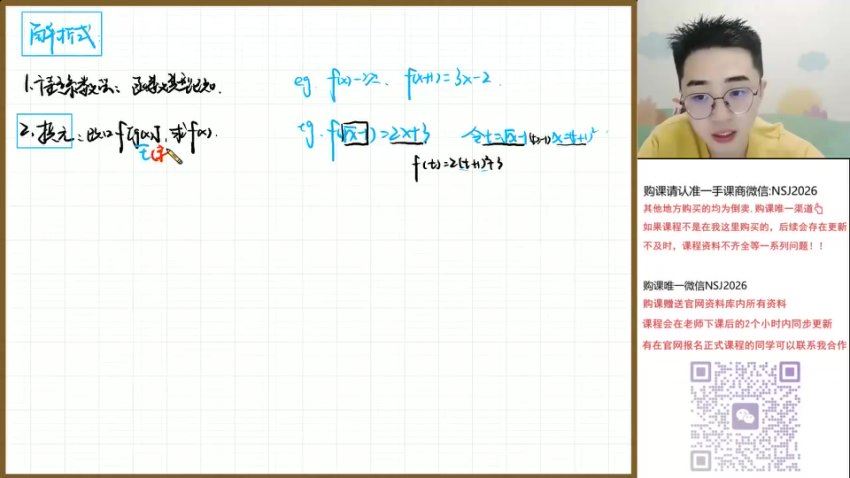 解析式
1.待定系数法: 函数类型已知.
eg f(x)一次、 f(x+1)=3x-2.
2.换元: 已知f[g(x)], 求f(x).
eg. f(√x-1)=2x+3 令t=√x-1 (t≥-1) x=(t+1)²
f(t)=2(t+1)²+3
购课请认准一手课商微信:NSJ2026
其他地方购买的均为倒卖,购课唯一渠道
如果课程不是在我这里购买的，后续会存在更新
不及时，课程资料不齐全等一系列问题！！
购课唯一微信NSJ2026
购课赠送官网资料库内所有资料
课程会在老师下课后的2个小时内同步更新
有在官网报名正式课程的同学可以联系我合作